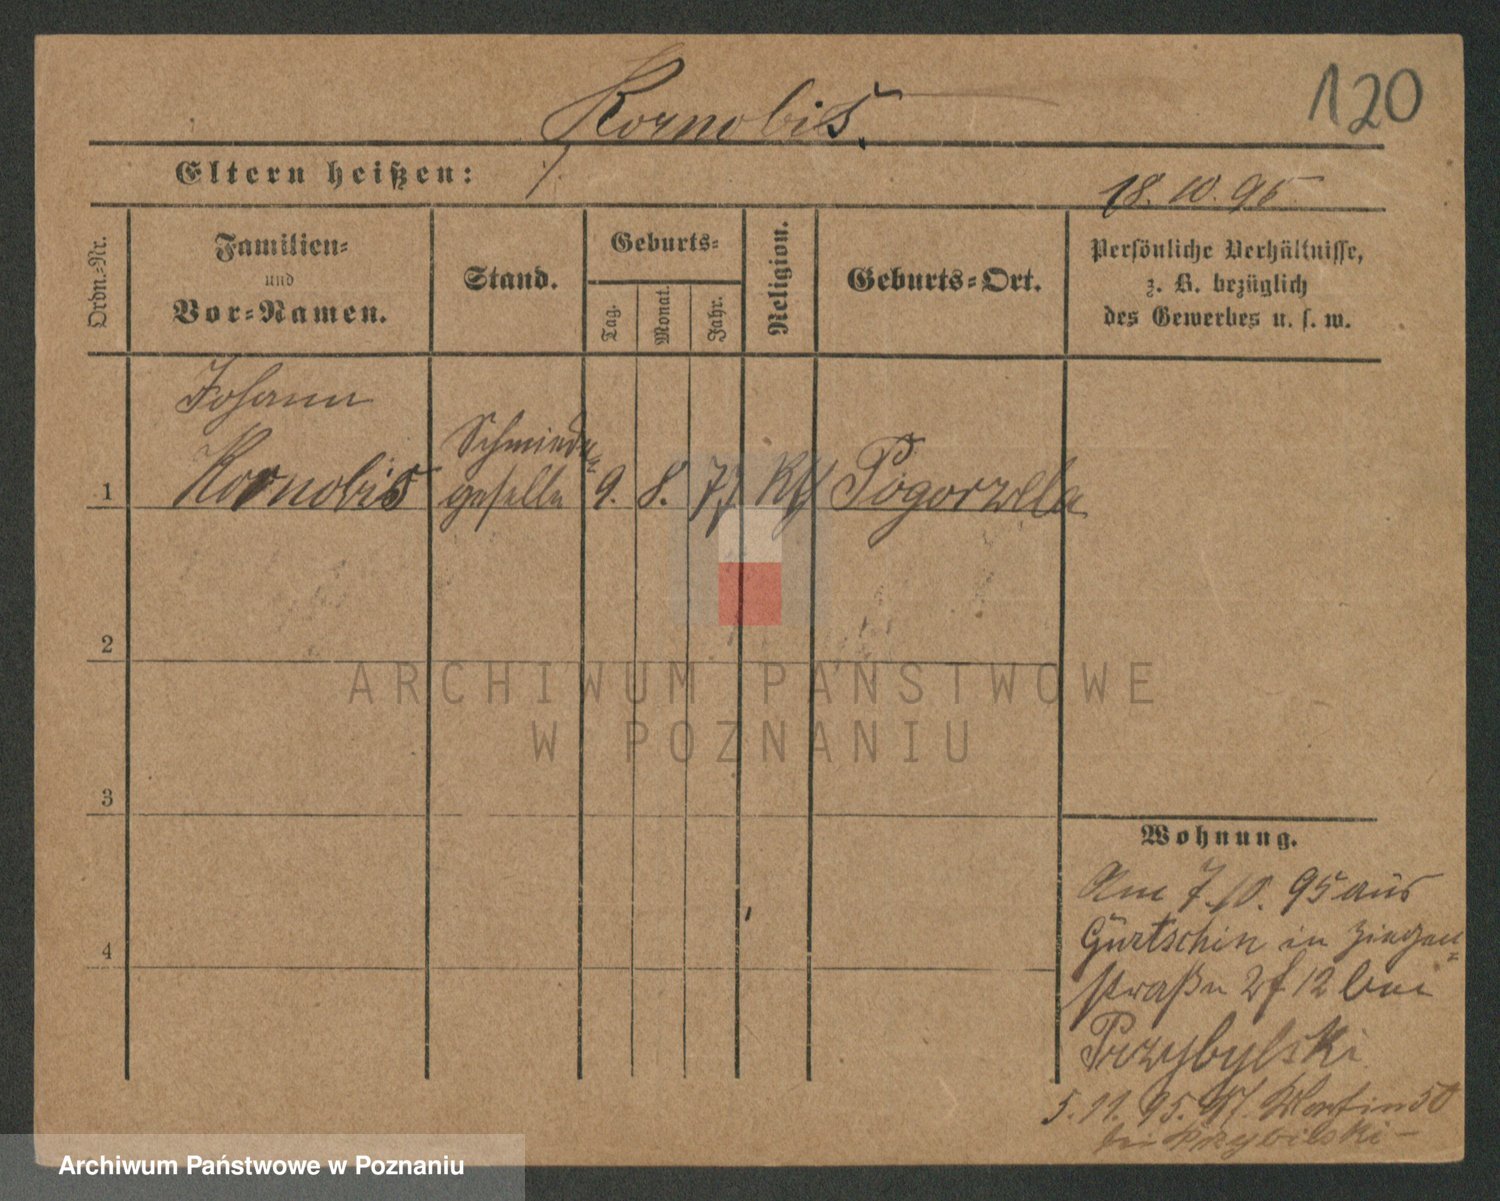 120
Kornobis.
Eltern heißen: /.
18. 10. 95
Ordn.-Nr.
Familien-
und
Vor-Namen.
Stand.
Geburts-
Tag.
Monat.
Jahr.
Religion.
Geburts-Ort.
Persönliche Verhältnisse,
z. B. bezüglich
des Gewerbes u. s. w.
Johann
Schmiede-
1 Kornobis geselle 9. 8. 77 kth Pogorzela
2
ARCHIWUM PAŃSTWOWE
W POZNANIU
3
4
Wohnung.
Am 7.10. 95 aus
Gurtschin in Ziegen-
straße 12 bei
Przybylski
5.11. 95. St. Martin 50
bei Przybilski
Archiwum Państwowe w Poznaniu